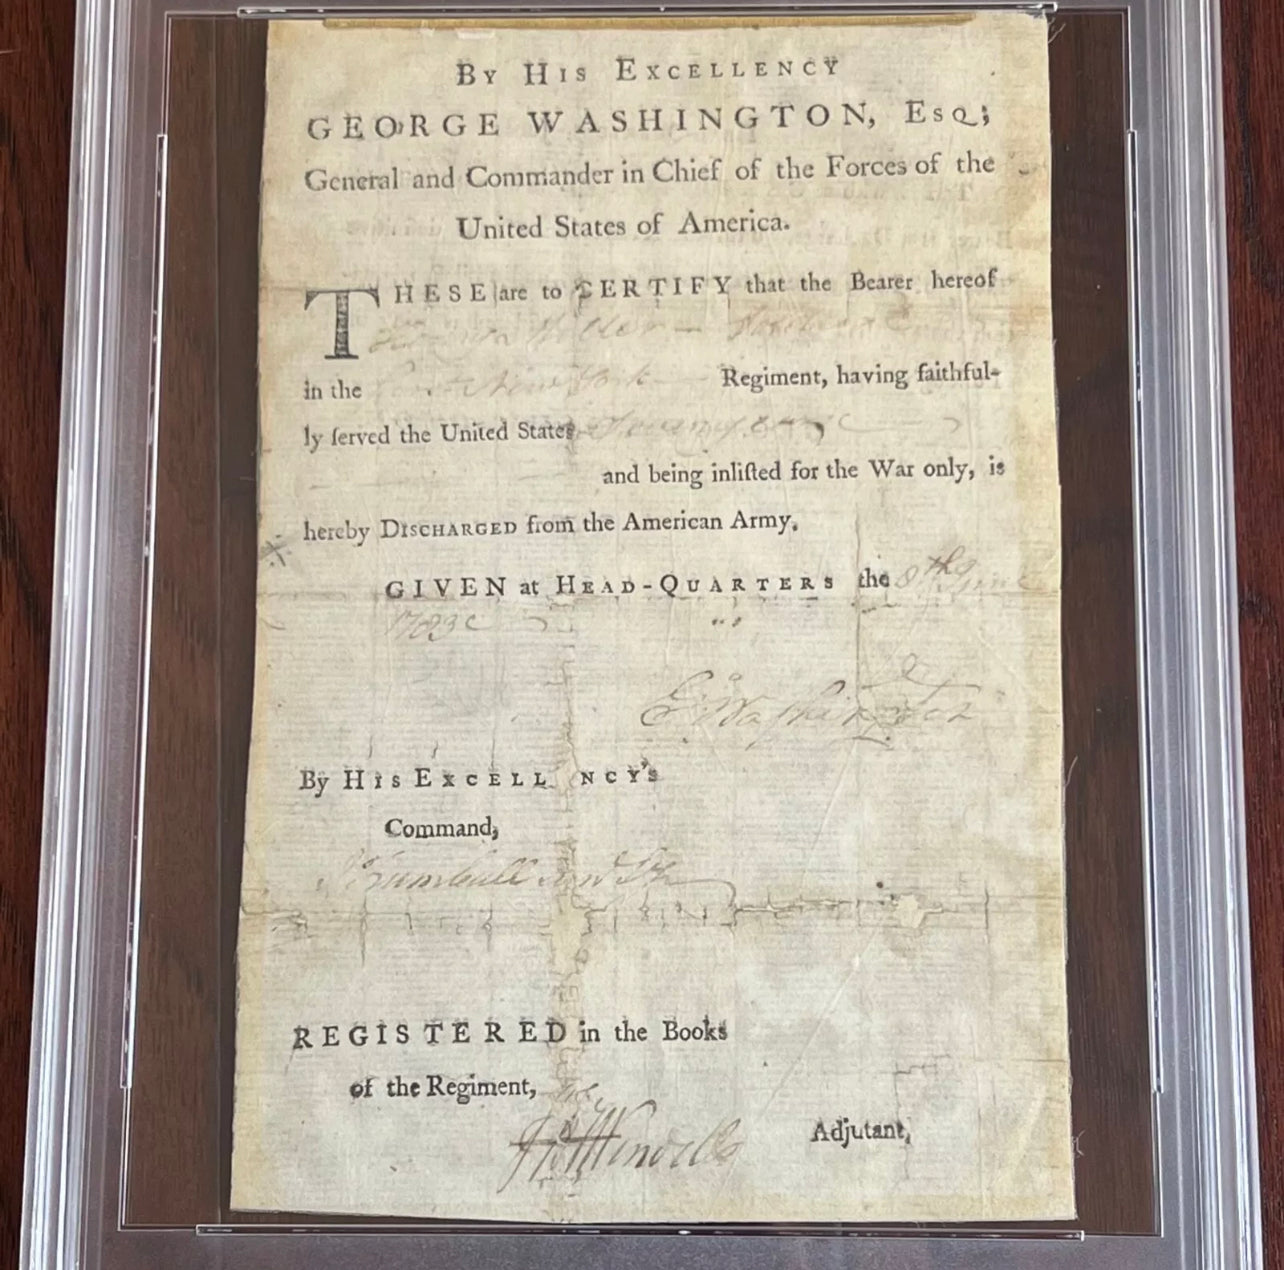 By His Excellency
GEORGE WASHINGTON, Esq;
General and Commander in Chief of the Forces of the
United States of America.
THESE are to CERTIFY that the Bearer hereof
in the New York Regiment, having faithful-
ly ſerved the United States
and being inliſted for the War only, is
hereby Discharged from the American Army.
GIVEN at Head-Quarters the 8th June
1783
G Washington
By His Excell ncy's
Command,
J Trumbull
REGISTERED in the Books
of the Regiment,
Adjutant,